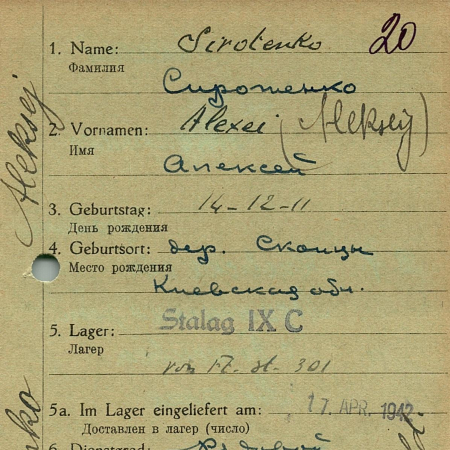 1. Name: Sirotenko 20
Фамилия
Сиротенко
2. Vornamen: Alexei (Aleksej)
Имя
Алексей
3. Geburtstag: 14-12-11
День рождения
4. Geburtsort: дер. Скопцы
Место рождения
Киевская обл.
5. Lager: Stalag IX C
Лагер
von Fr. St. 301
5a. Im Lager eingeliefert am: 17. APR. 1942
Доставлен в лагер (число)
6. Dienstgrad: Рядовой
Aleksej